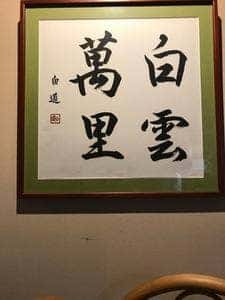 白雲
萬里
白道